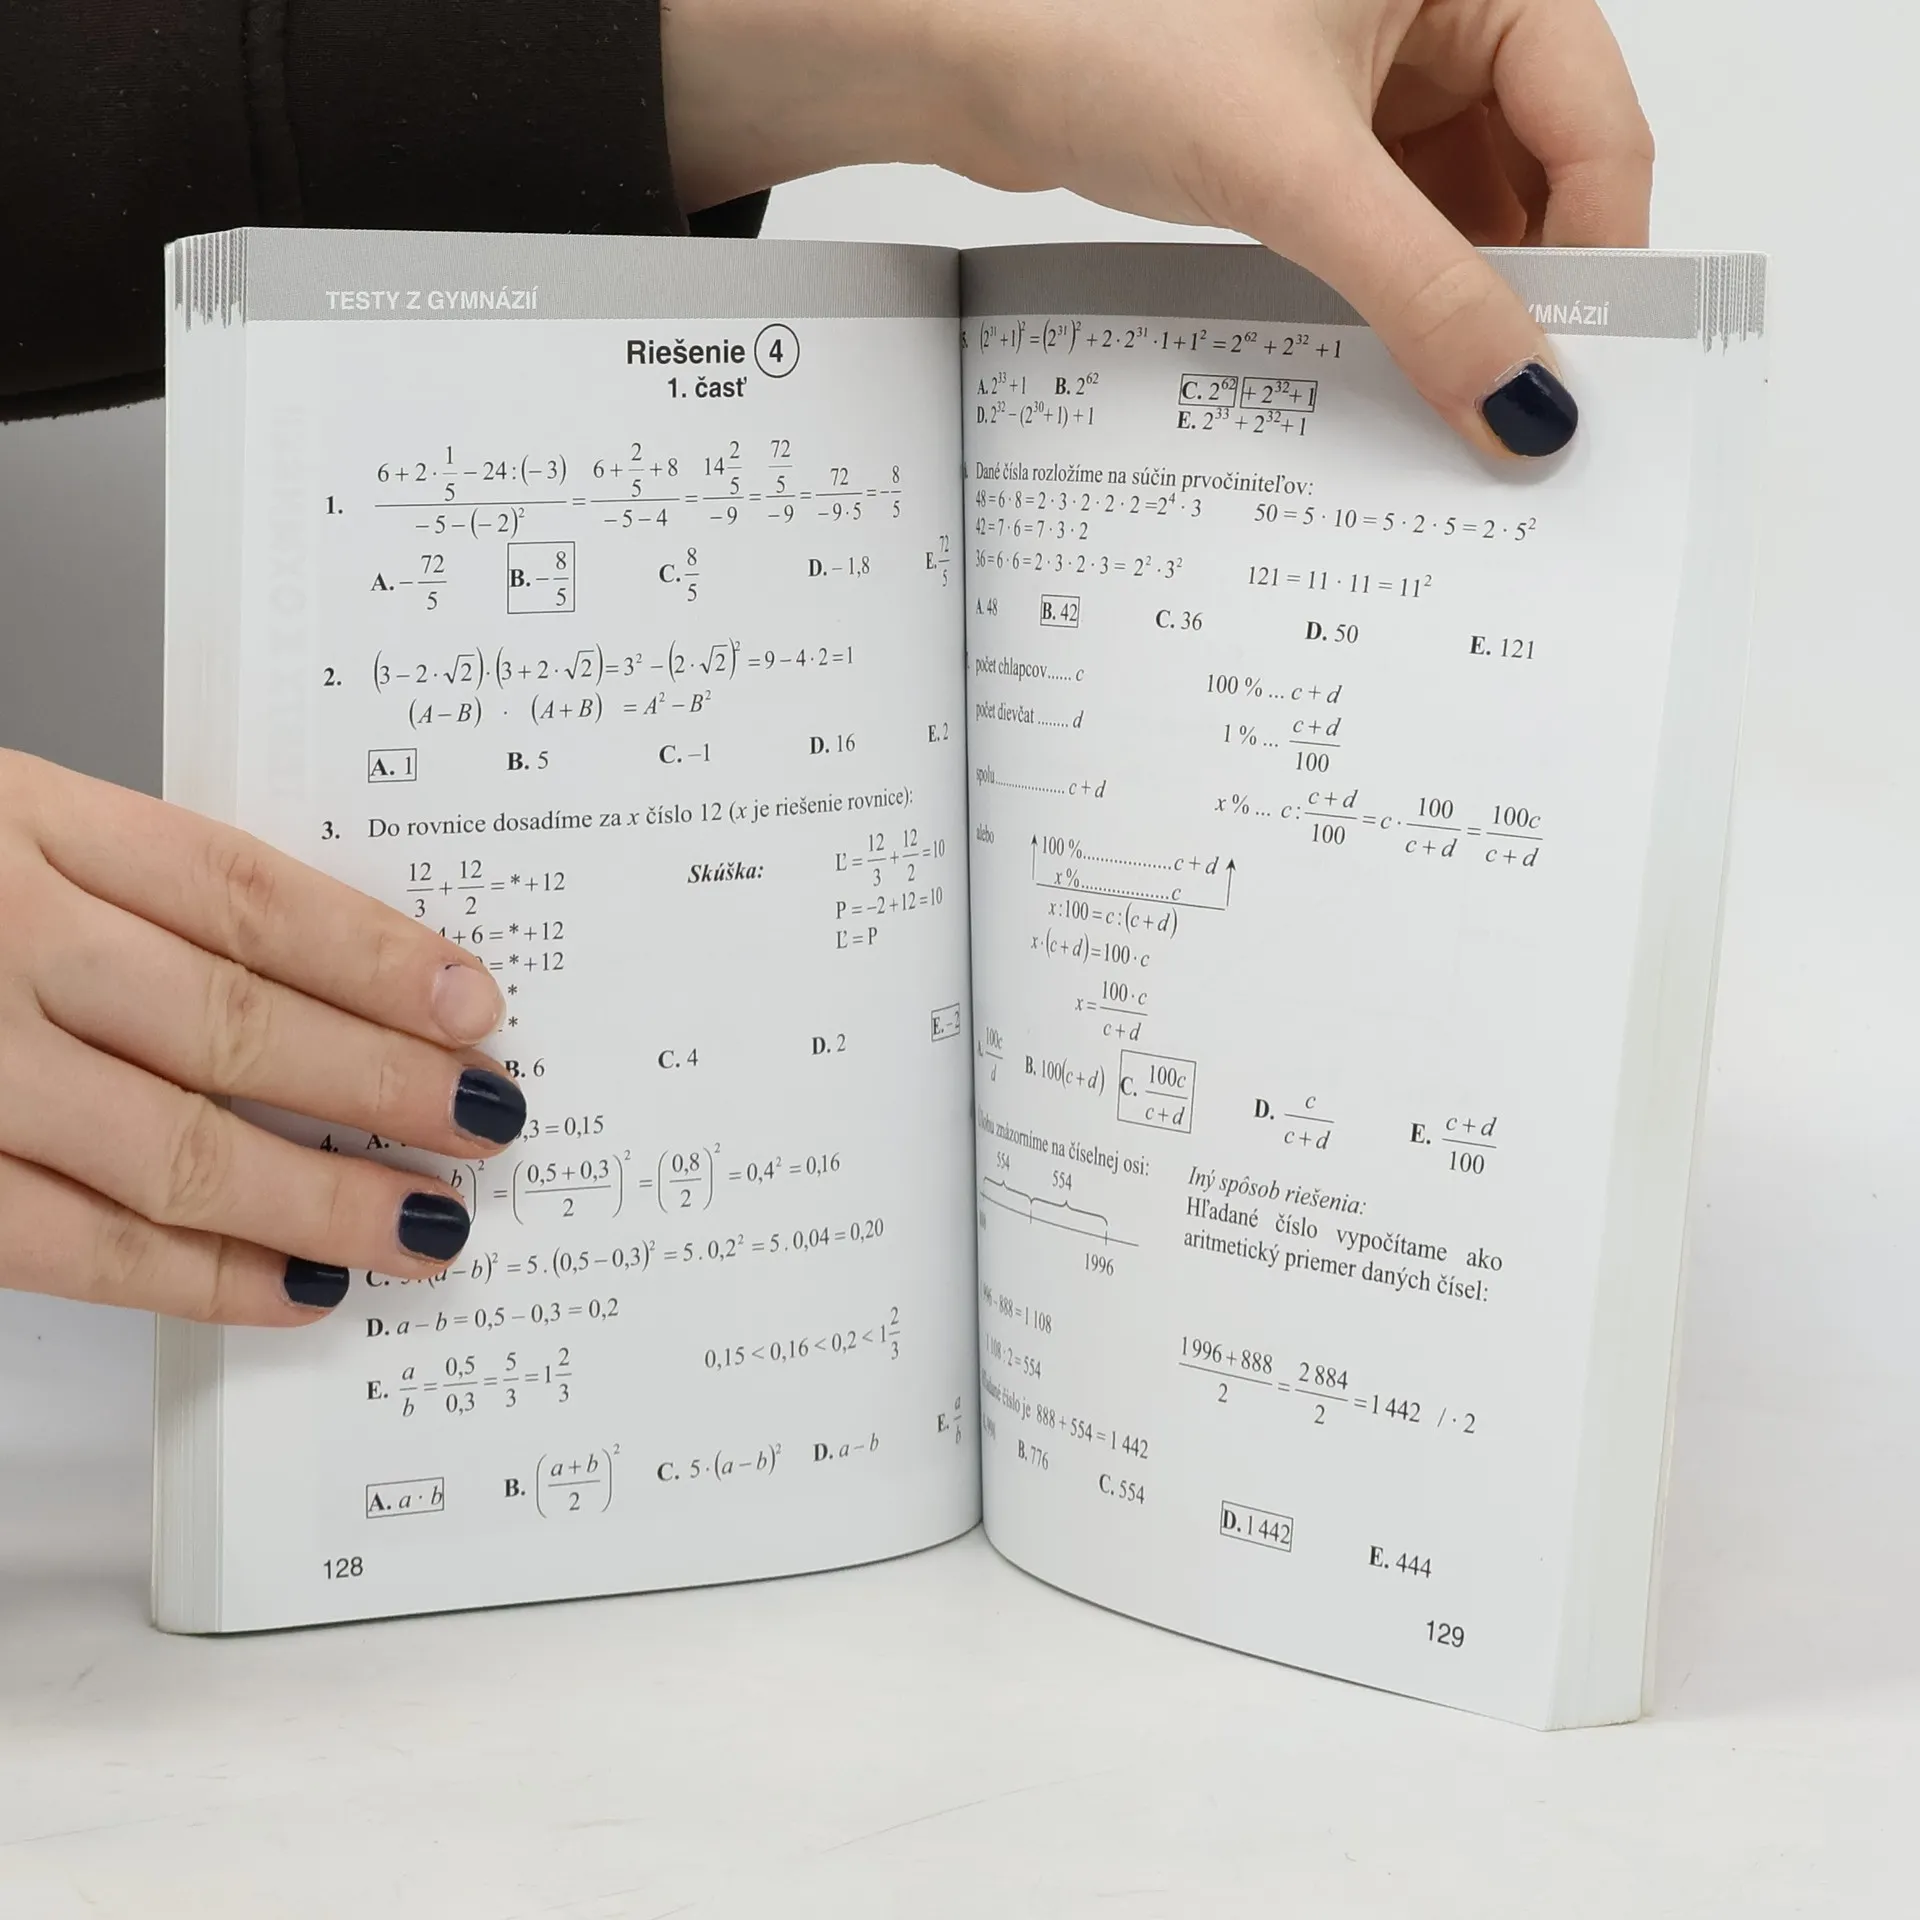 TESTY Z GYMNÁZIÍ
Riešenie 4
1. časť
1. (6+2·1/5−24:(−3))/(−5−(−2)²) = (6+2/5+8)/(−5−4) = (14 2/5)/(−9) = (72/5)/(−9) = 72/(−9·5) = −8/5
A. −72/5 B. −8/5 C. 8/5 D. −1,8 E. 72/5
2. (3−2·√2)·(3+2·√2)=3²−(2·√2)²=9−4·2=1
(A−B) · (A+B) = A²−B²
A. 1 B. 5 C. −1 D. 16 E. 2
3. Do rovnice dosadíme za x číslo 12 (x je riešenie rovnice):
12/3 + 12/2 = *+12 Skúška: Ľ = 12/3 + 12/2 = 10
4+6=*+12 P=−2+12=10
=*+12 Ľ=P
*
*
B. 6 C. 4 D. 2 E. −2
4. A. ,3=0,15
b)² = ((0,5+0,3)/2)² = (0,8/2)² = 0,4² = 0,16
C. −b)² = 5.(0,5−0,3)² = 5.0,2² = 5.0,04 = 0,20
D. a−b=0,5−0,3=0,2
E. a/b = 0,5/0,3 = 5/3 = 1 2/3 0,15<0,16<0,2<1 2/3
A. a·b B. ((a+b)/2)² C. 5·(a−b)² D. a−b E. a/b
128
YMNÁZIÍ
(2³¹+1)²=(2³¹)²+2·2³¹·1+1²=2⁶²+2³²+1
A. 2³³+1 B. 2⁶² C. 2⁶²+2³²+1
D. 2³²−(2³⁰+1)+1 E. 2³³+2³²+1
Dané čísla rozložíme na súčin prvočiniteľov:
48=6·8=2·3·2·2·2=2⁴·3 50=5·10=5·2·5=2·5²
42=7·6=7·3·2
36=6·6=2·3·2·3=2²·3² 121=11·11=11²
A. 48 B. 42 C. 36 D. 50 E. 121
počet chlapcov...... c 100 % ... c+d
počet dievčat ........ d 1 % ... (c+d)/100
spolu.................... c+d x % ... c:(c+d)/100 = c·100/(c+d) = 100c/(c+d)
alebo
100 %...................c+d
x %...................c
x:100=c:(c+d)
x·(c+d)=100·c
x=100·c/(c+d)
A. 100c/d B. 100(c+d) C. 100c/(c+d) D. c/(c+d) E. (c+d)/100
znázorníme na číselnej osi:
554 554
1996
Iný spôsob riešenia:
Hľadané číslo vypočítame ako
aritmetický priemer daných čísel:
−888=1 108
1 108:2=554
(1 996+888)/2 = 2 884/2 = 1 442 /·2
číslo je 888+554=1 442
B. 776 C. 554 D. 1 442 E. 444
129